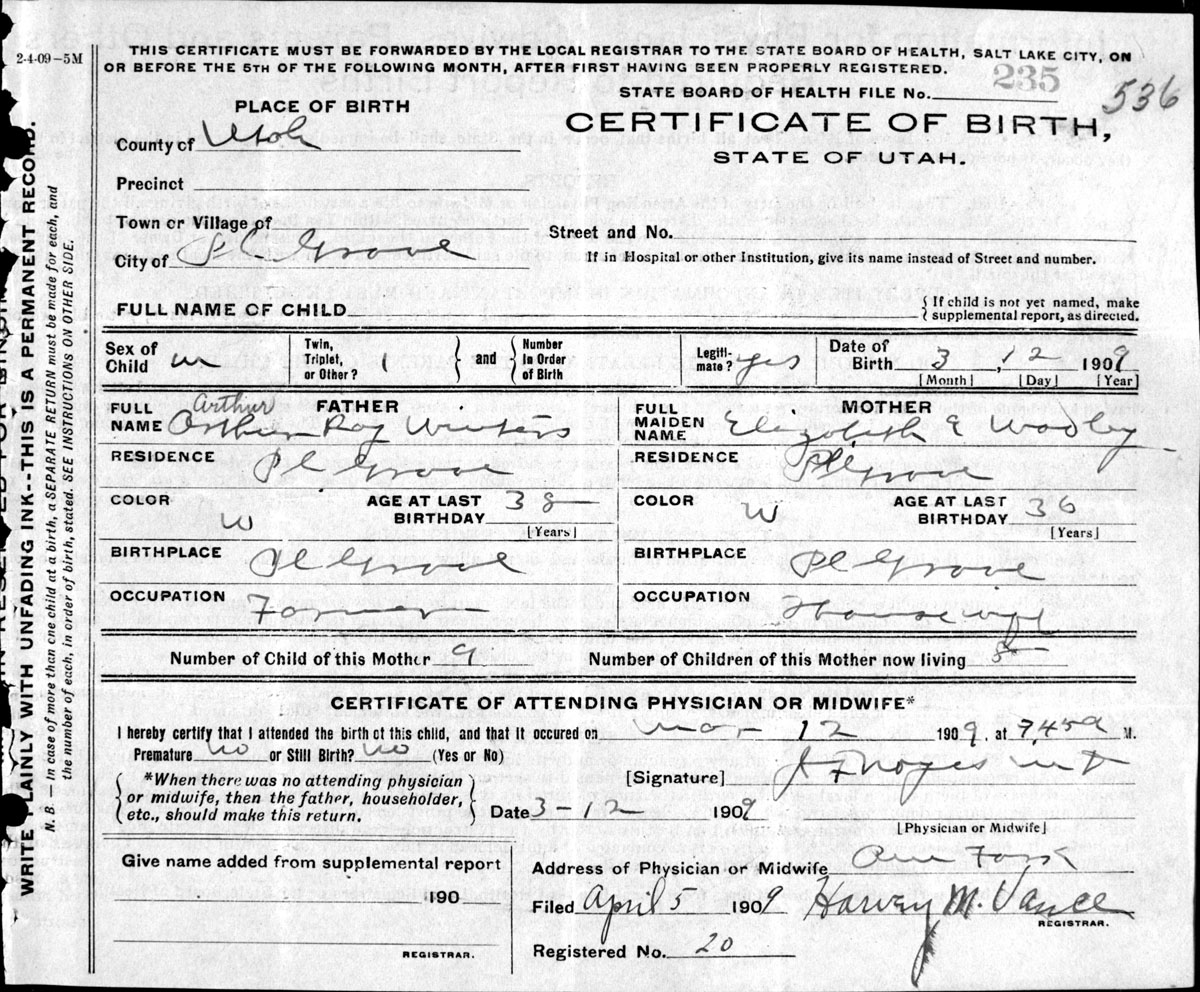 2-4-09-5M
THIS CERTIFICATE MUST BE FORWARDED BY THE LOCAL REGISTRAR TO THE STATE BOARD OF HEALTH, SALT LAKE CITY, ON
OR BEFORE THE 5TH OF THE FOLLOWING MONTH, AFTER FIRST HAVING BEEN PROPERLY REGISTERED.
STATE BOARD OF HEALTH FILE No. 235
536
PLACE OF BIRTH
CERTIFICATE OF BIRTH,
STATE OF UTAH.
County of Utah
Precinct
Town or Village of
City of Pl Grove
Street and No.
If in Hospital or other Institution, give its name instead of Street and number.
FULL NAME OF CHILD
{ If child is not yet named, make
supplemental report, as directed.
Sex of Child m
Twin, Triplet, or Other? ( } and { Number in Order of Birth
Legitimate? yes
Date of Birth 3, 12 1909
[Month] [Day] [Year]
FATHER
FULL NAME Arthur
Arthur Roy Winters
RESIDENCE Pl Grove
COLOR W
AGE AT LAST BIRTHDAY 38
[Years]
BIRTHPLACE Pl Grove
OCCUPATION Farmer
MOTHER
FULL MAIDEN NAME Elizabeth E Wadley
RESIDENCE Pl Grove
COLOR W
AGE AT LAST BIRTHDAY 36
[Years]
BIRTHPLACE Pl Grove
OCCUPATION Housewife
Number of Child of this Mother 9
Number of Children of this Mother now living 8
CERTIFICATE OF ATTENDING PHYSICIAN OR MIDWIFE*
I hereby certify that I attended the birth of this child, and that it occured on Mar 12 1909, at 7,45 a M.
Premature no or Still Birth? no (Yes or No)
*When there was no attending physician
or midwife, then the father, householder,
etc., should make this return.
[Signature] J F Noyes
Date 3-12 1909
[Physician or Midwife]
Give name added from supplemental report
190
REGISTRAR.
Address of Physician or Midwife Am Fork
Filed April 5 1909 Harvey M. Vance
REGISTRAR.
Registered No. 20
WRITE PLAINLY WITH UNFADING INK--THIS IS A PERMANENT RECORD.
N. B. — In case of more than one child at a birth, a SEPARATE RETURN must be made for each, and
the number of each, in order of birth, stated. SEE INSTRUCTIONS ON OTHER SIDE.